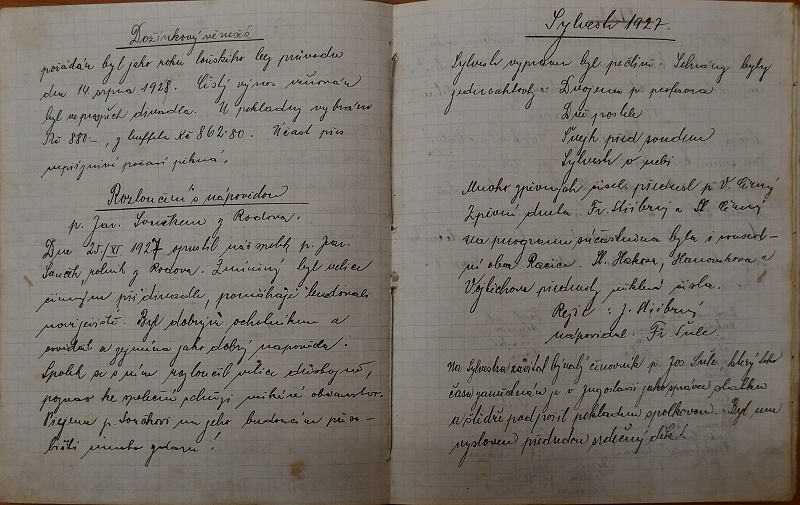 Dožínkový věneček
pořádán byl jako roku loňského bez průvodu
dne 14 srpna 1928. Čistý výnos věnován
byl ve prospěch divadla. U pokladny vybráno
Kč 880–, z buffetu Kč 862·80. Účast přes
nepříznivé počasí pěkná.
Rozloučení s nápovědou
p. Jar. Součkem z Radova.
Dne 25./XI 1927 opustil náš spolek p. Jar.
Souček, rolník z Radova. Zmíněný byl velice
činným při divadle, pomáhaje budovati
nové jeviště. Byl dobrým ochotníkem a
osvědčil se zejména jako dobrý nápověda.
Spolek se s ním rozloučil velice důstojně,
pozvav ke společné schůzi místní občanstvo.
Přejeme p. Součkovi na jeho budoucím půso-
bišti mnoho zdaru!
Sylvestr 1927.
Sylvestr vypraven byl pečlivě. Sehrány byly
jednoaktovky: Dvojenec p. profesora
Dvě poslek
Švejk před soudem
Sylvestr v nebi
Mnoho zpěvných čísel přednesl p. V. Černý
Zpěvní dueta Fr. Stříbrný a Sl. Černý
na programu súčastněna byla i soused-
ní obec Račice. Sl. Hakova, Hanouskova a
Vojtěchova přednesly některá čísla.
Režie: J. Stříbrný
nápovídal: Fr. Šulc
Na Sylvestra zavítal bývalý činovník p. Jos Šulc, který toho
času zaměstnán je v Jugoslavii jako správce statku
a štědře podpořil pokladnu spolkovou. Byl mu
vysloven předsedou srdečný dík!